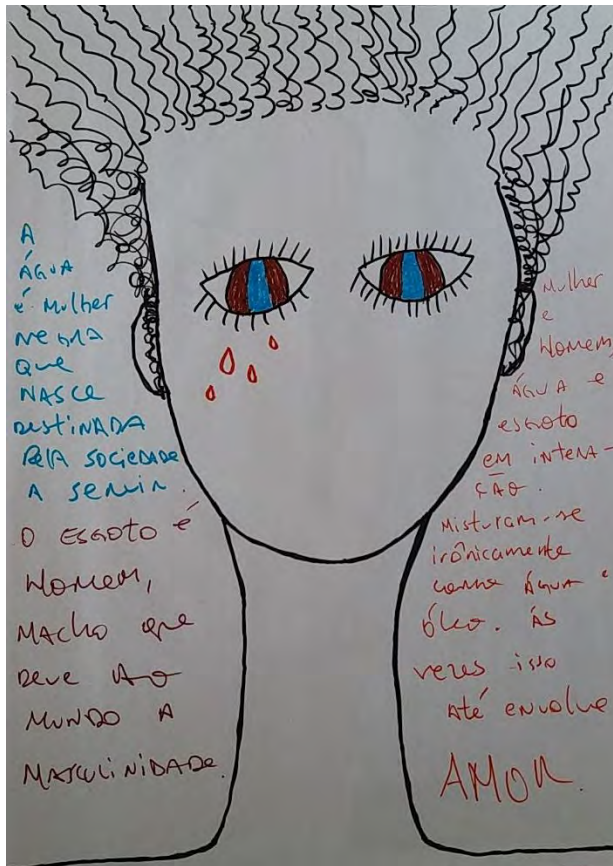 A
ÁGUA
é Mulher
NEGRA
QUE
NASCE
DESTINADA
PELA SOCIEDADE
A SERVIR.
O ESGOTO É
HOMEM,
MACHO que
DEVE AO
MUNDO A
MASCULINIDADE.
Mulher
e
Homem,
ÁGUA e
esgoto
EM INTERA-
ÇÃO.
Misturam-se
irônicamente
como ÁGUA e
ÓLEO. ÀS
vezes isso
Até envolve
AMOR.